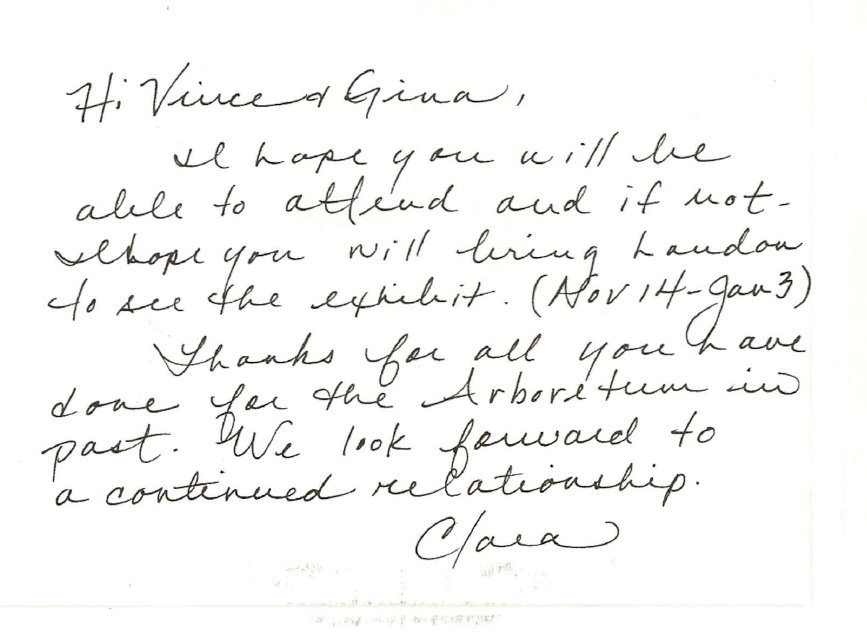 Hi Vince & Gina,
I hope you will be
able to attend and if not -
I hope you will bring Landon
to see the exhibit. (Nov 14 - Jan 3)
Thanks for all you have
done for the Arboretum in
past. We look forward to
a continued relationship.
Clara